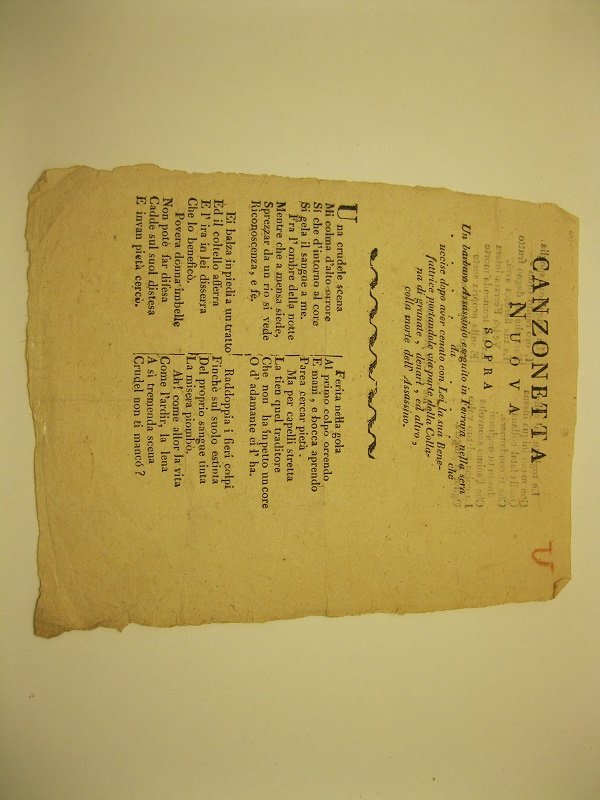 CANZONETTA
NUOVA
SOPRA
Un barbaro Assassinio eseguito in Ferrara nella sera
. . . . . . di . . . . . . che
uccise dopo aver cenato con Lei la sua Bene-
fattrice portandole via parte della Colla-
na di granate, denari, ed altro,
colla morte dell' Assassino.
Una crudele scena
Mi colma d'alto orrore
Sì che d'intorno al core
Si gela il sangue a me.
Fra l'ombre della notte
Mentre che a mensa siede,
Sprezzar da un rio si vede
Riconoscenza, e fe.
Ei balza in piedi a un tratto
Ed il coltello afferra
E l' ira in lei disserra
Che lo beneficò.
Povera donna imbelle
Non potè far difesa
Cadde sul suol distesa
E invan pietà cercò.
Ferita nella gola
Al primo colpo orrendo
E mani, e bocca aprendo
Parea cercar pietà.
Ma per capelli stretta
La tien quel traditore
Che non ha in petto un core
O d' adamante ei l' ha.
Raddoppia i fieri colpi
Finchè sul suolo estinta
Del proprio sangue tinta
La misera piombò.
Ah! come allor la vita
Come l'ardir, la lena
A sì tremenda scena
Crudel non ti mancò?